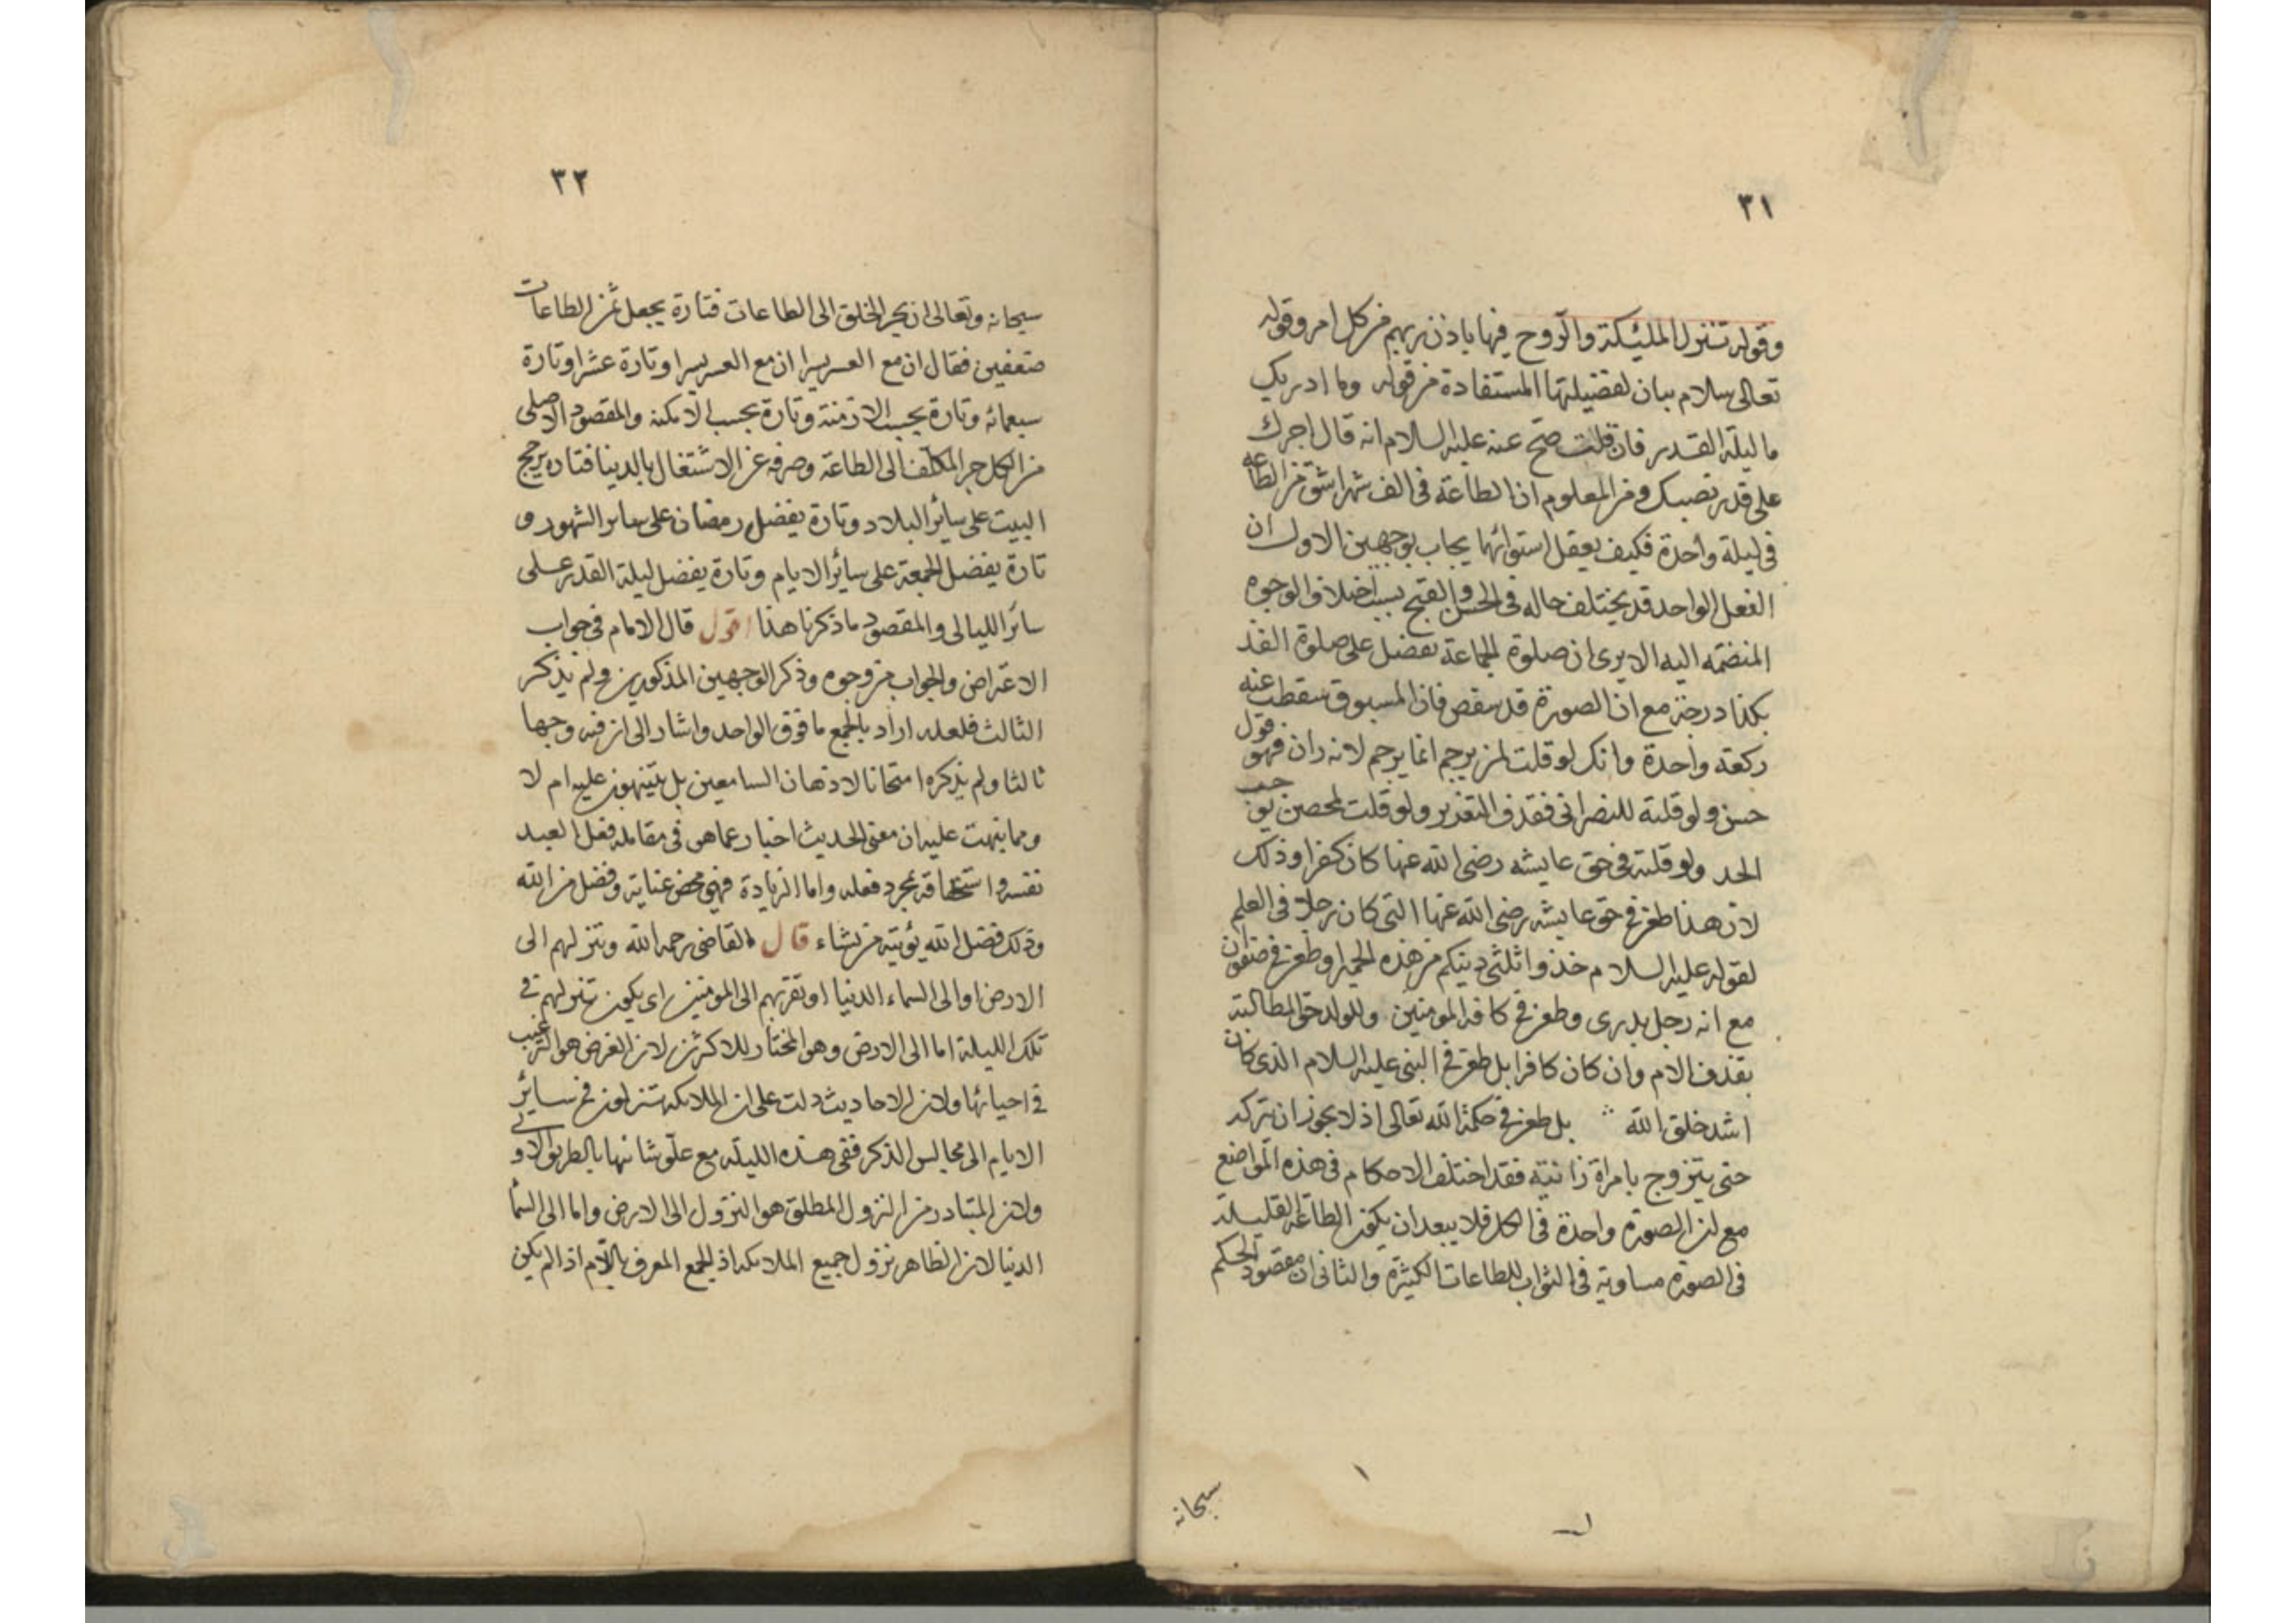 ٣١
وقوله تنزل الملئكة والروح فيها باذن ربهم من كل امر وقوله
تعالى سلام بيان لفضيلتها المستفادة من قوله وما ادريك
ما ليلة القدر فان قلت صح عنه عليه السلام انه قال اجرك
على قدر نصبك ومن المعلوم ان الطاعة فى الف شهر اشق من الطاعه
فى ليلة واحدة فكيف يعقل استوائهما يجاب بوجهين الاول ان
الفعل الواحد قد يختلف حاله فى الحسن والقبح بسبب اختلاف الوجوه
المنضمه اليه الا يرى ان صلوة الجماعة تفضل على صلوة الفذ
بكذا درجة مع ان الصورة قد تنقص فان المسبوق سقطت عنه
ركعة واحدة وانك لو قلت لمن يرجم انما يرجم لانه زان فهو قول
حسن ولو قلته للنصرانى فقذف التعزير ولو قلت لمحصن يوجب
الحد ولو قلته فى حق عايشه رضى الله عنها كان كفرا وذلك
لان هذا طعن فى حق عايشه رضى الله عنها التى كان رجلا فى العلم
لقوله عليه السلام خذوا ثلثى دينكم من هذه الحميرا وطعن فى صفوان
مع انه رجل بدرى وطعن فى كافة المومنين وللولد حق المطالبة
بقذف الام وان كان كافرا بل طعن فى النبى عليه السلام الذى كان
اشد خلق الله بل طعن فى حكمة الله تعالى اذ لا يجوز ان تركه
حتى يتزوج بامراة زانية فقد اختلف الاحكام فى هذه المواضع
مع ان الصورة واحدة فى الكل فلا يبعد ان يكون الطاعة القليلة
فى الصورة مساوية فى الثواب للطاعات الكثيرة والثانى ان مقصود الحكم
سبحانه
٣٢
سبحانه وتعالى ان يجر الخلق الى الطاعات فتارة يجعل ثمن الطاعات
ضعفين فقال ان مع العسر يسرا ان مع العسر يسرا وتارة عشرا وتارة
سبعمائه وتارة بحسب الازمنة وتارة بحسب الامكنه والمقصود الاصلى
من الكل جر المكلف الى الطاعة وصرفه عن الاشتغال بالدينا فتاره يرجح
البيت على سائر البلاد وتارة يفضل رمضان على سائر الشهور و
تارة يفضل الجمعة على سائر الايام وتارة يفضل ليلة القدر على
سائر الليالى والمقصود ما ذكرنا هذا اقول قال الامام فى جواب
الاعتراض والجواب من وجوه وذكر الوجهين المذكورين ولم يذكر
الثالث فلعله اراد بالجمع ما فوق الواحد واشار الى ان فيه وجها
ثالثا ولم يذكره امتحانا لاذهان السامعين بل يتنبهون عليه ام لا
ومما ينبهت عليه ان معنى الحديث اخبار عما هو فى مقابلة فعل العبد
نفسه واستحقاقه بمجرد فعله واما الزيادة فهى محض عناية وفضل من الله
وذلك فضل الله يؤتيه من يشاء قال القاضى رحمه الله وتنزلهم الى
الارض او الى السماء الدنيا او تقربهم الى المومنين اى يكون تنزلهم فى
تلك الليلة اما الى الارض وهو المختار للاكثرين لان الغرض هو الترغيب
فى احيائها ولان الاحاديث دلت على ان الملائكه تنزلون فى سائر
الايام الى مجالس الذكر ففى هذه الليلة مع علو شانها بالطريق الاولى
ولان المتبادر من النزول المطلق هو النزول الى الارض واما الى السما
الدنيا لان الظاهر نزول جميع الملائكه اذ الجمع المعرف باللام اذا لم يكن